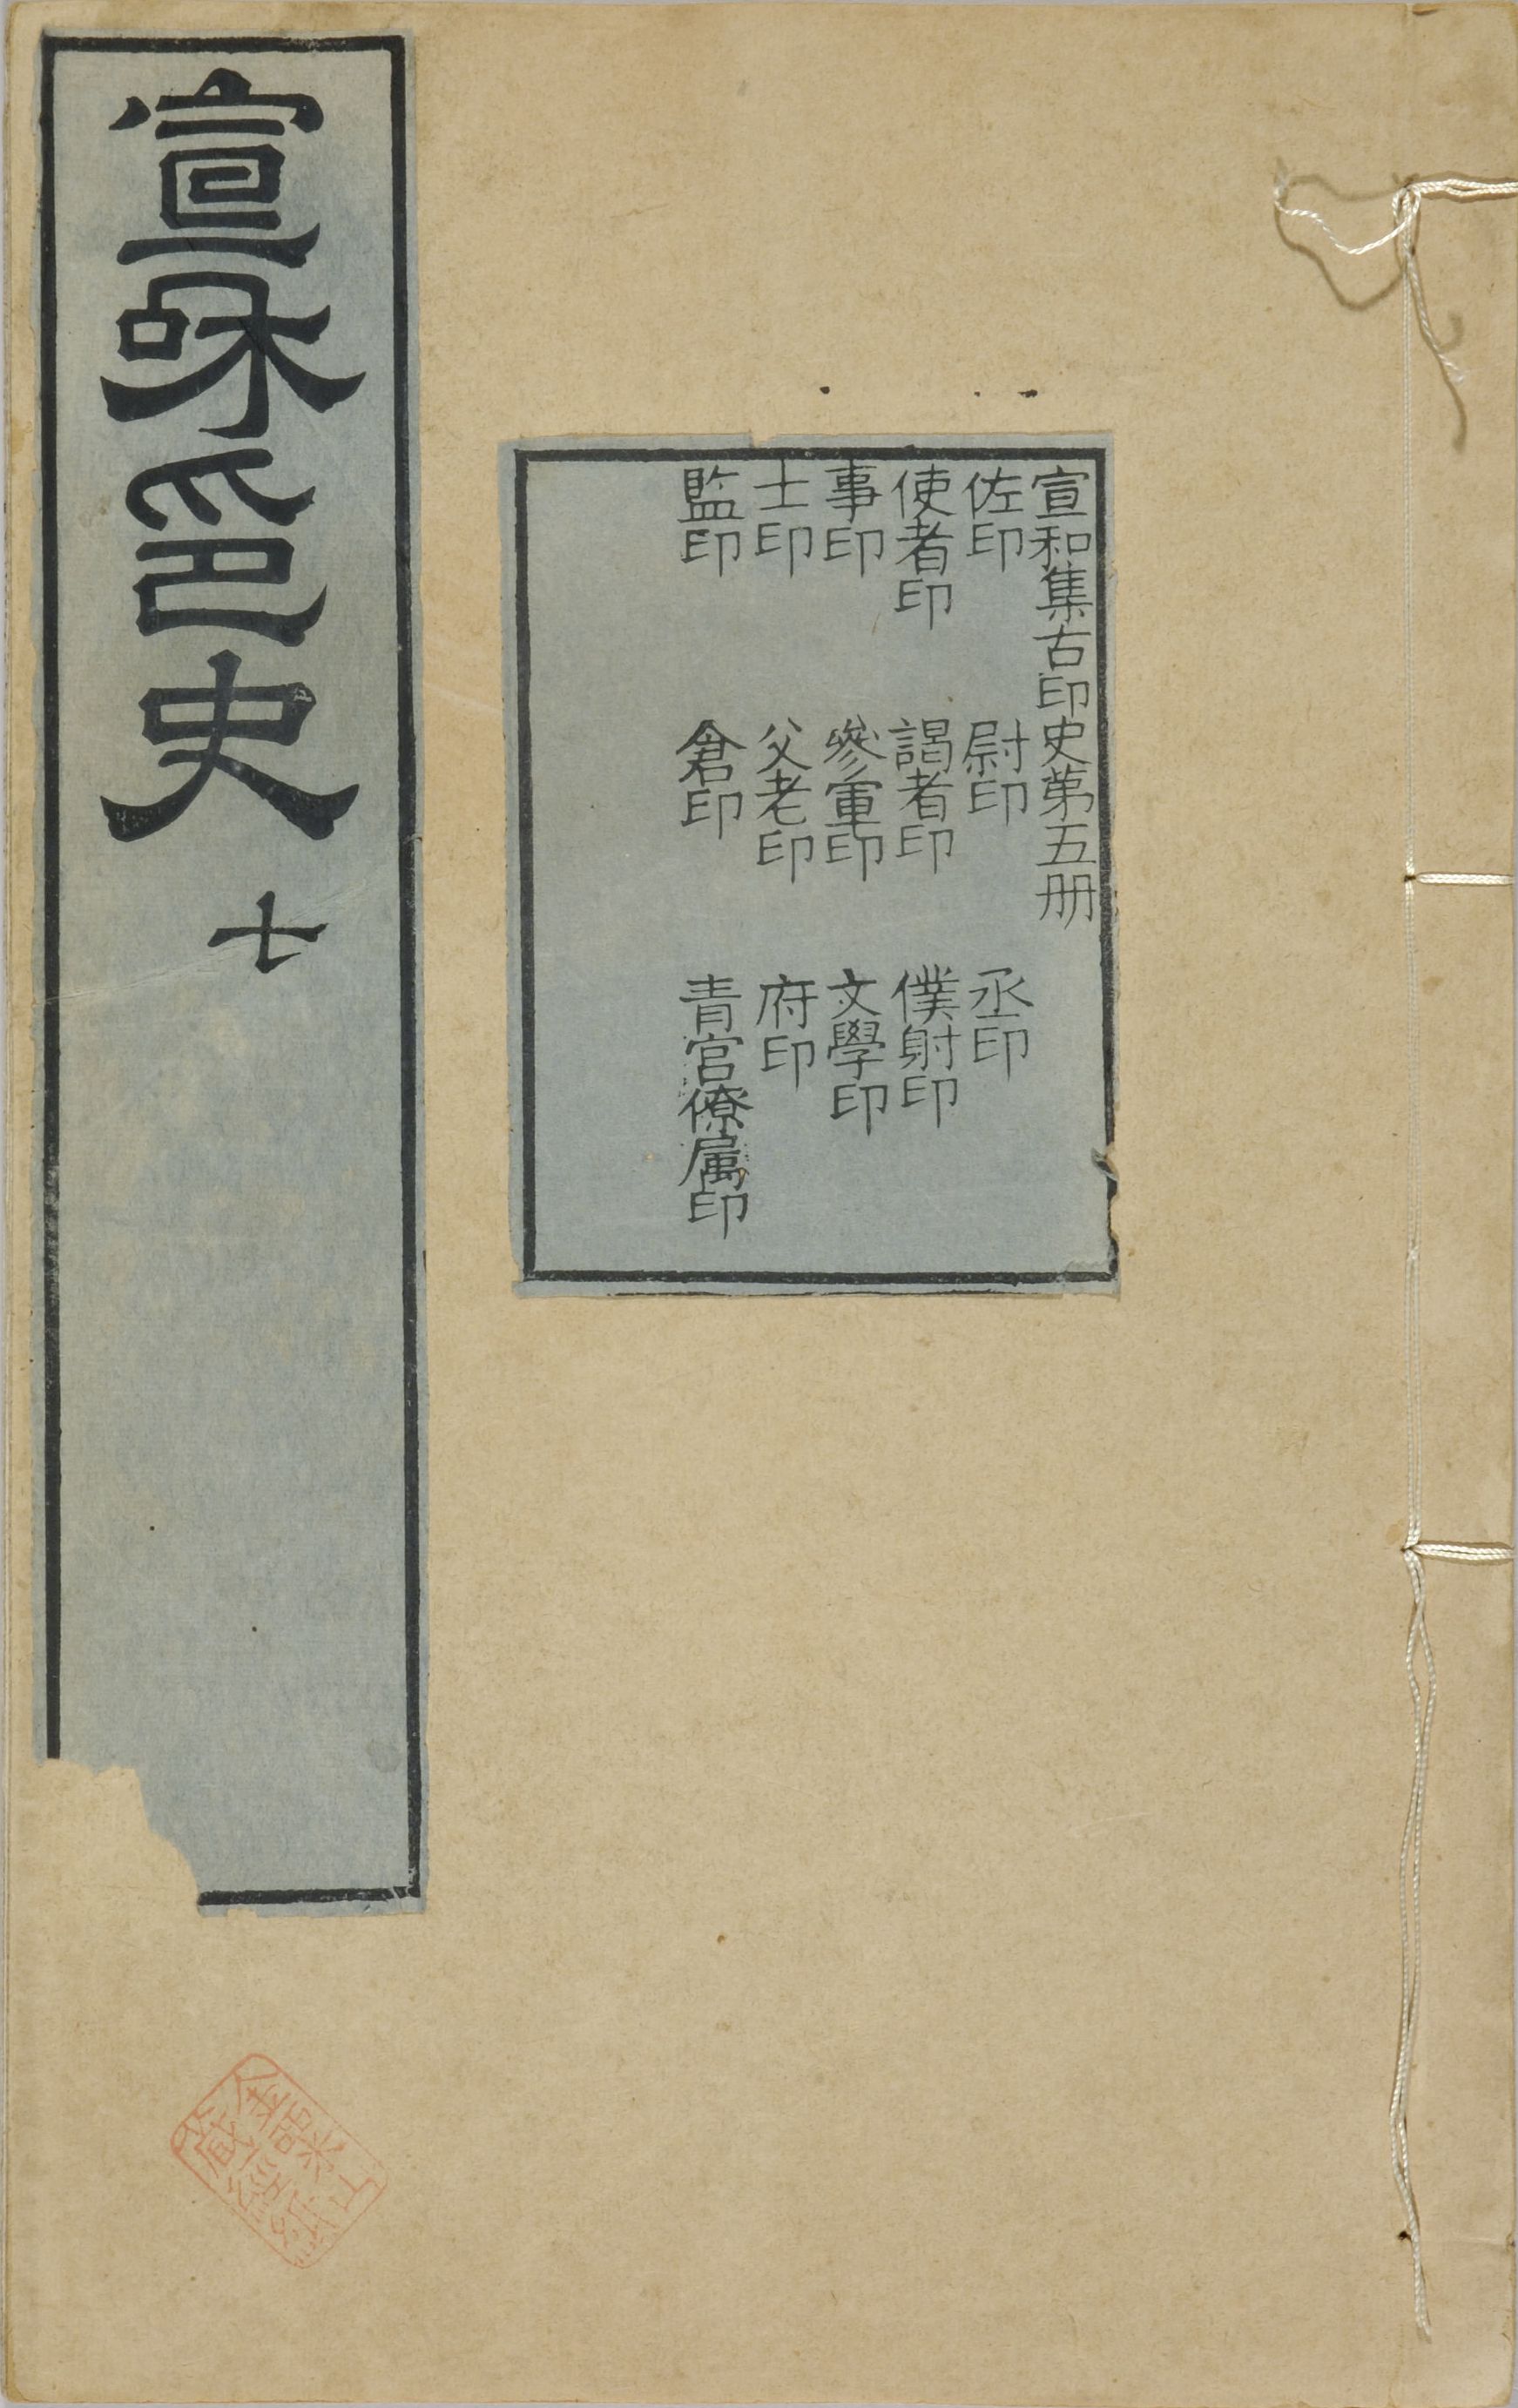 宣和集古印史第五册
佐印 尉印 丞印
使者印 謁者印 僕射印
事印 參軍印 文學印
士印 父老印 府印
監印 倉印 青宮僚属印
宣和印史 七